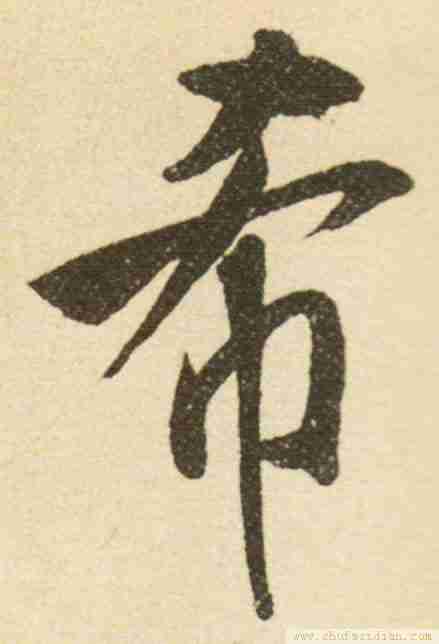 希
www.shufazidian.com